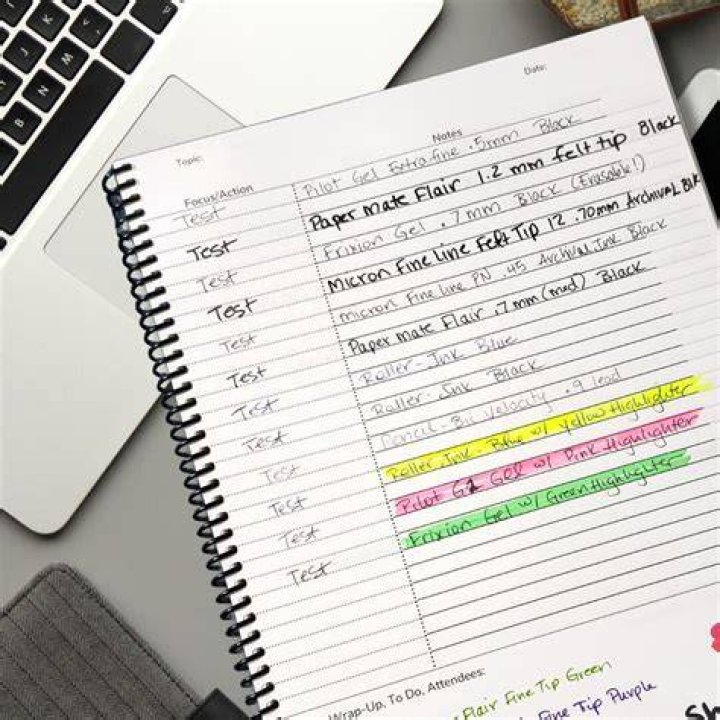 Date:
Topic:
Notes
Focus/Action
Test Pilot Gel Extra fine .5mm Black
Test Paper mate Flair 1.2 mm felt tip Black
Test Frixion Gel .7mm Black (Erasable!)
Test Micron Fine line Felt Tip 12 .70mm Archival Blk
Test micron Fine line PN .45 Archival Ink Black
Test Paper mate Flair .7mm (med) Black
Test Roller-Ink Blue
Test Roller-Ink Black
Test Pencil-Bic Velocity .9 lead
Test Roller Ink-Blue w/ Yellow Highlighter
Test Pilot G2 Gel w/ Pink Highlighter
Test Frixion Gel w/ Green Highlighter
Wrap-Up, To Do, Attendees:
Flair Fine Tip Green
Fine Tip Purple
K
M
N
B